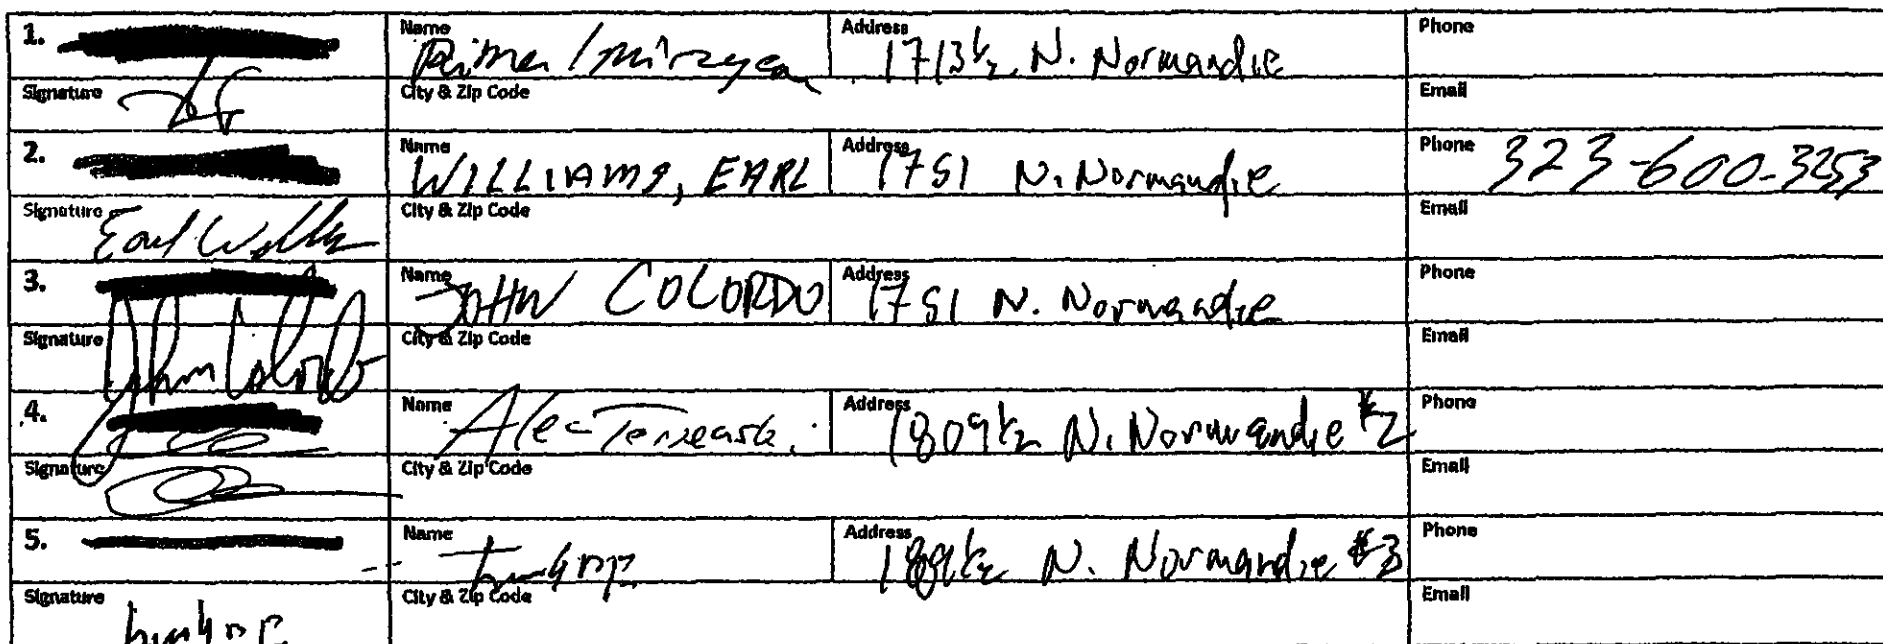 1. Name Address 1713½ N. Normandie Phone
Signature City & Zip Code Email
2. Name WILLIAMS, EARL Address 1751 N. Normandie Phone 323-600-3253
Signature Earl Williams City & Zip Code Email
3. Name JOHN COLORDO Address 1751 N. Normandie Phone
Signature John Colordo City & Zip Code Email
4. Name Alec Address 1809½ N. Normandie #2 Phone
Signature City & Zip Code Email
5. Name Address N. Normandie #3 Phone
Signature City & Zip Code Email